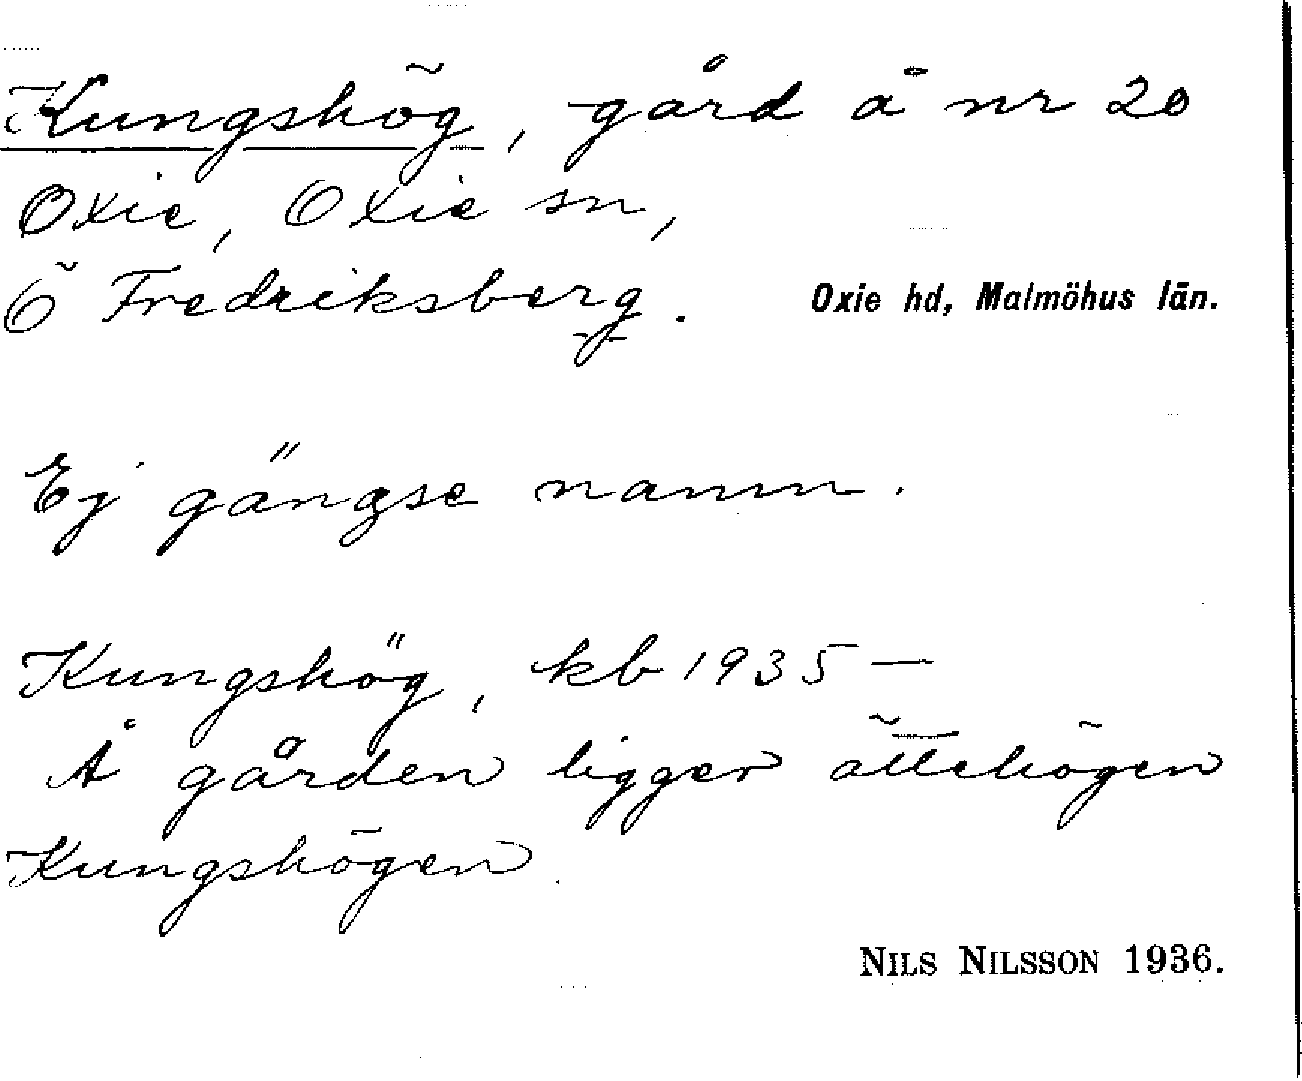 Kungshög, gård å nr 20
Oxie, Oxie sn,
Ö Fredriksberg. Oxie hd, Malmöhus län.
Ej gängse namn.
Kungshög, kb 1935 —
Å gården ligger ättehögen
Kungshögen.
NILS NILSSON 1936.